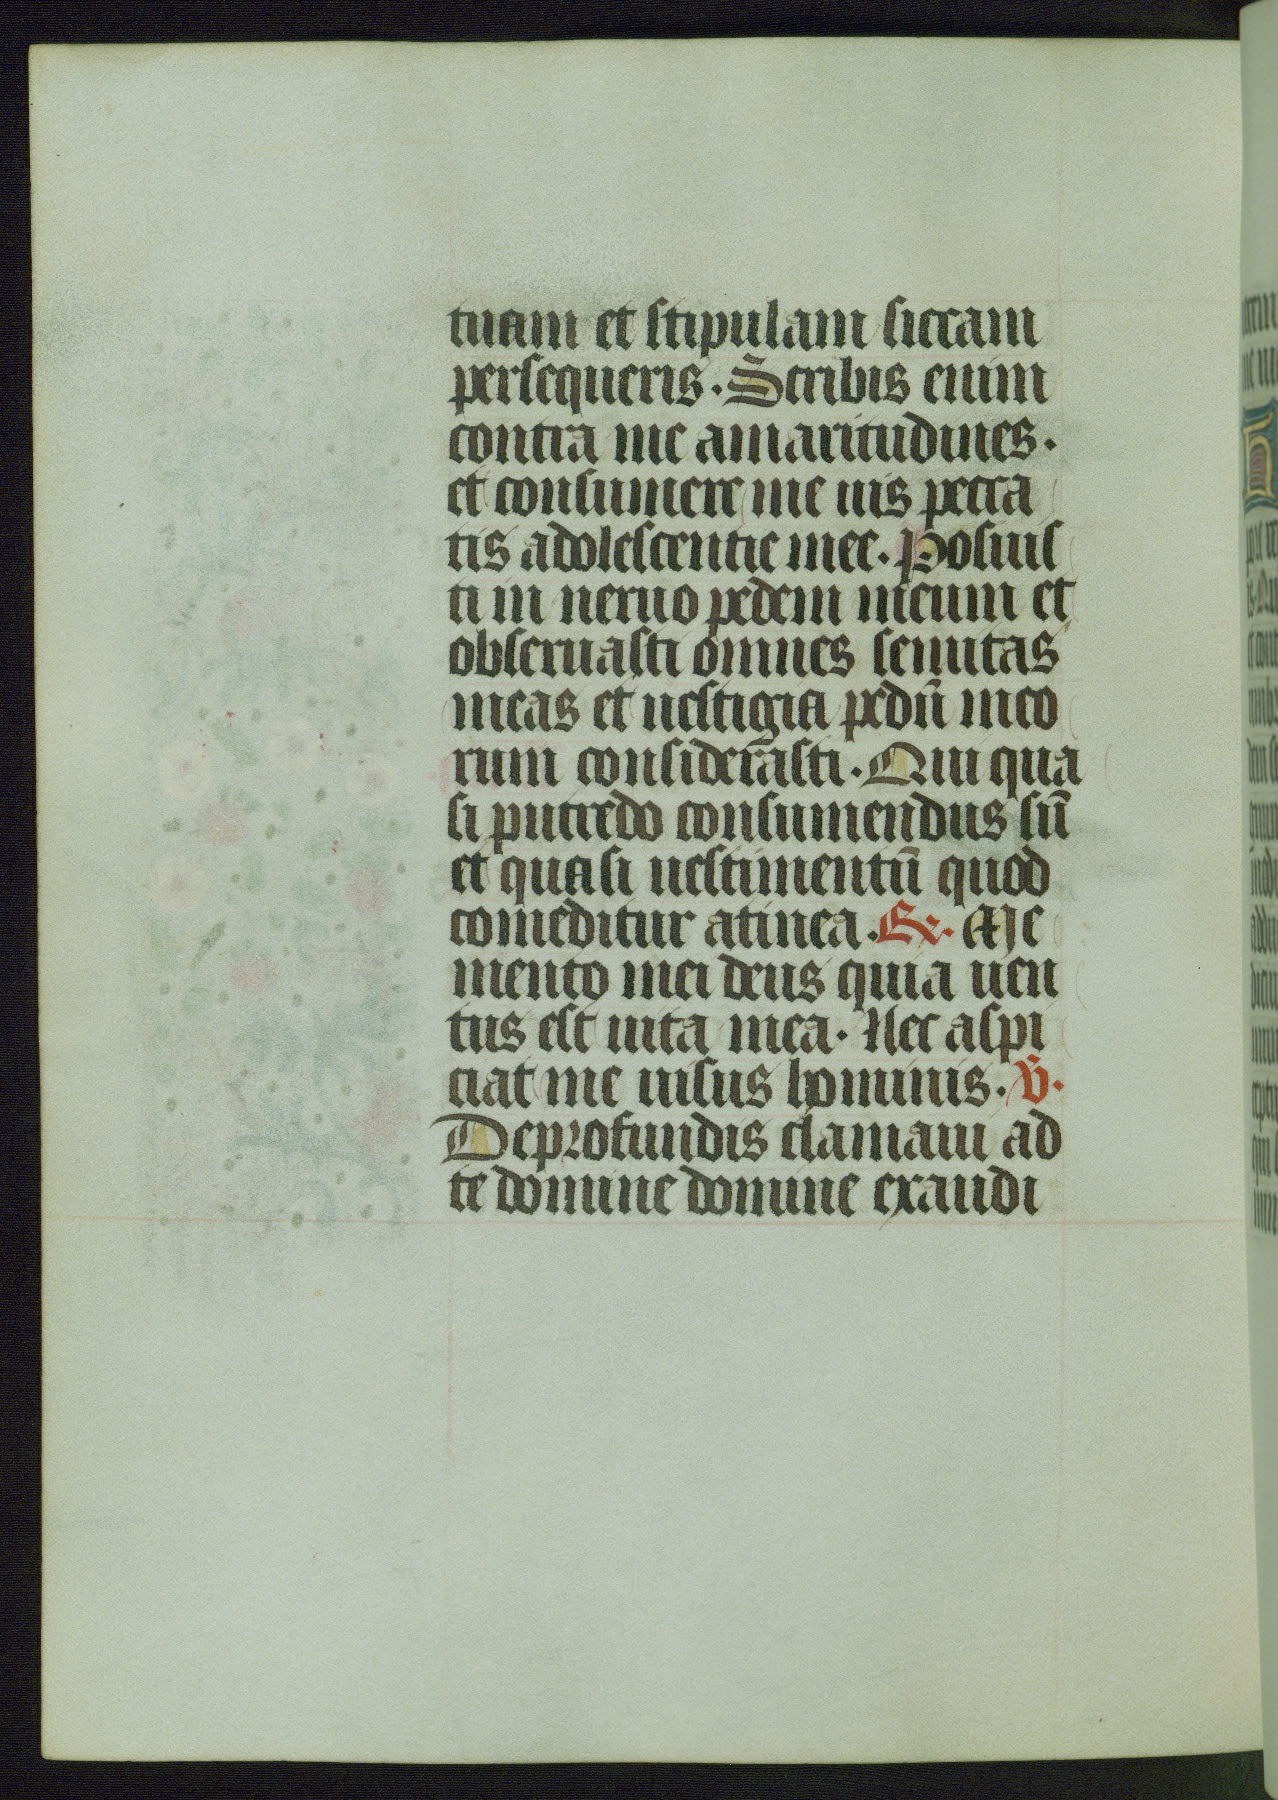 tuam et stipulam siccam
persequeris. Scribis enim
contra me amaritudines.
et consumere me uis pecca
tis adolescentie mee. Posuis
ti in neruo pedem meum et
obseruasti omnes semitas
meas et uestigia pedū meo
rum considerasti. Qui qua
si putredo consumendus sū
et quasi uestimentū quod
comeditur atinea. R. Me
mento mei deus quia uen
tus est uita mea. Nec aspi
ciat me uisus hominis. V.
Deprofundis clamaui ad
te domine domine exaudi